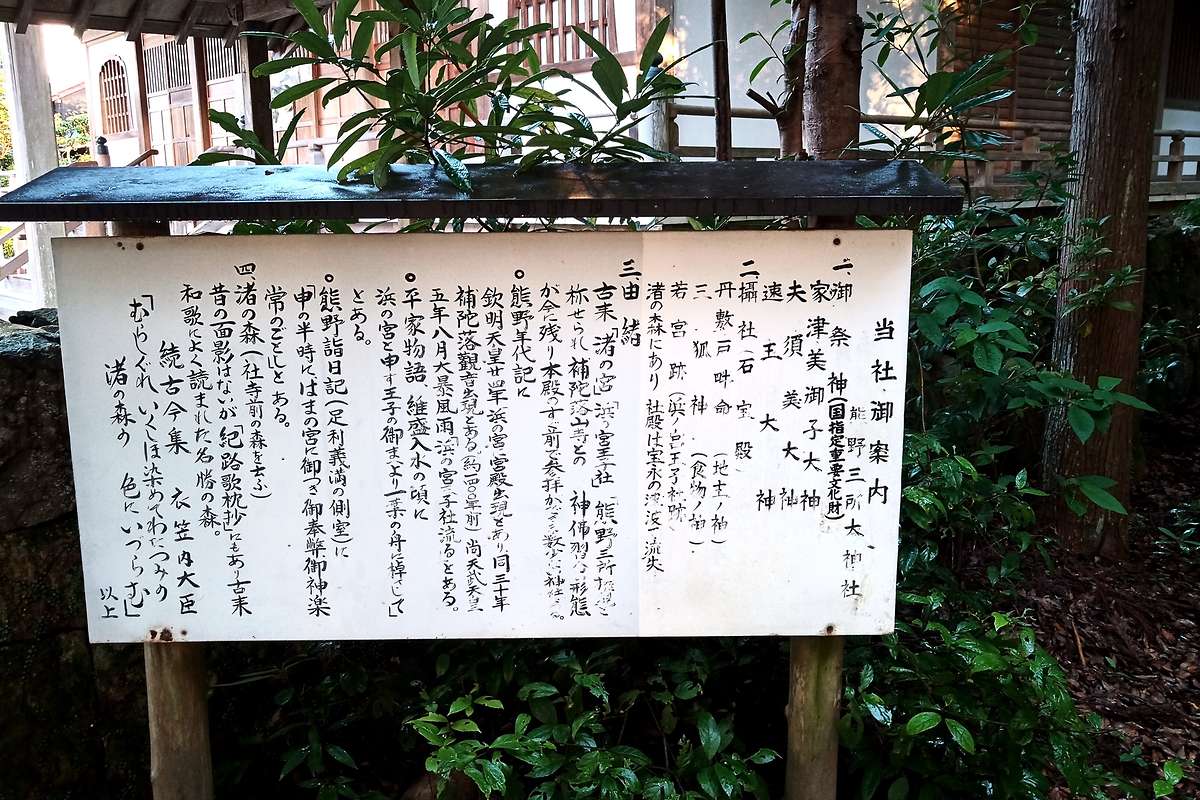 当社御案内
熊野三所大神社
一、御祭神(国指定重要文化財)
家津美御子大神
夫須美大神
速玉大神
二、攝社(石宝殿)
丹敷戸畔命(地主ノ神)
三狐神(食物ノ神)
若宮跡(浜ノ宮王子社跡)
渚の森にあり 社殿は宝永の津浪で流失
三、由緒
古来「渚の宮」「浜の宮王子社」「熊野三所権現」と
称せられ、補陀落山寺との 神佛習合の形態
が今に残り本殿のすぐ前で参拝ができる数少い神社
熊野年代記に
欽明天皇廿四年浜の宮に宮殿出現とあり同三十年
補陀落観音出現とある。 尚天武天皇
五年八月大暴風雨「浜の宮王子社流る」とある。
平家物語、維盛入水の頃に
浜の宮と申す王子の御まえより一葉の舟に棹さして」
とある。
熊野詣日記(足利義満の側室)に
「申の半時にはまの宮に御つき御奉幣御神楽
常のごとし」とある。
四、渚の森(社寺前の森を云ふ)
昔の面影はないが「紀路歌枕抄」にもあり古来
和歌によく読まれた名勝の森。
続古今集 衣笠内大臣
「むらしぐれ、いくしほ染めてわたつみの
渚の森の 色にいづらむ」
以上